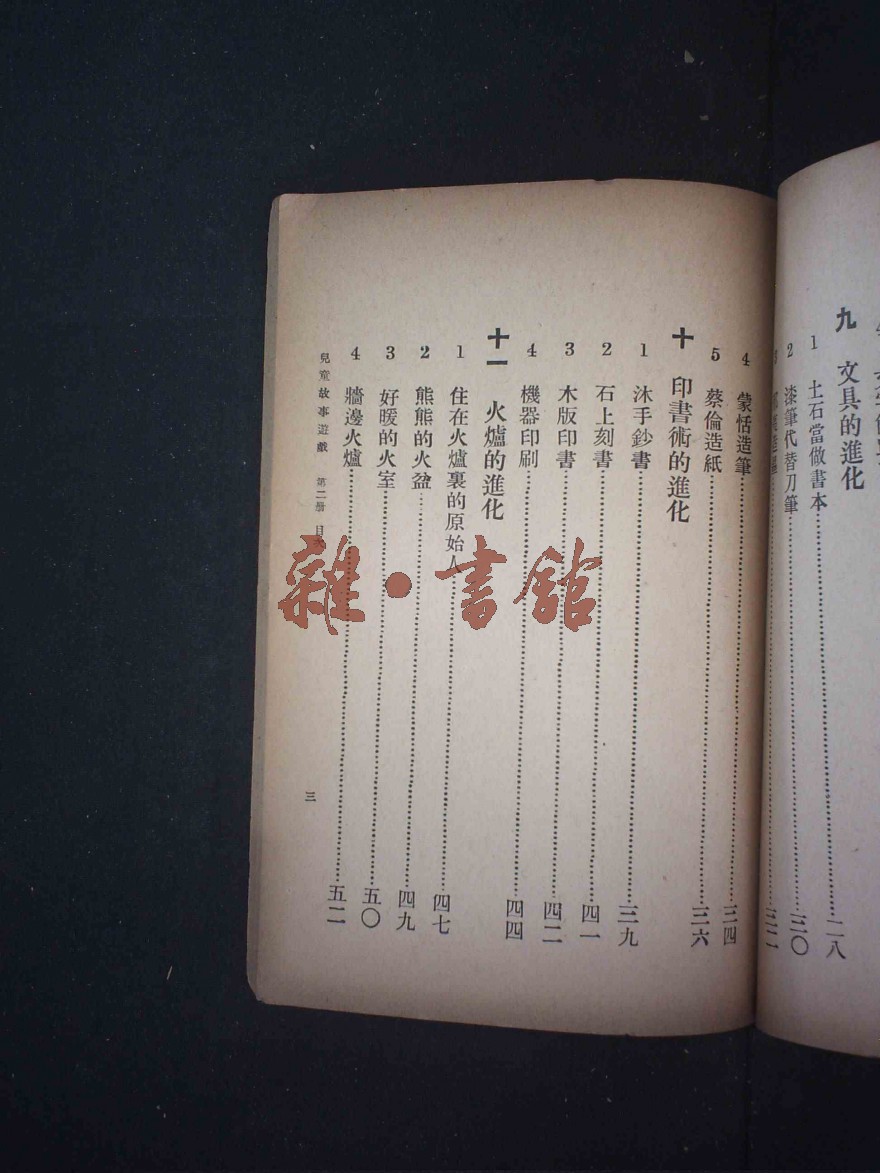 九 文具的進化
1 土石當做書本……二八
2 漆筆代替刀筆……三〇
3
4 蒙恬造筆……三四
5 蔡倫造紙……三六
十 印書術的進化
1 沐手鈔書……三九
2 石上刻書……四一
3 木版印書……四二
4 機器印刷……四四
十一 火爐的進化
1 住在火爐裏的原始人……四七
2 熊熊的火盆……四九
3 好暖的火室……五〇
4 牆邊火爐……五二
兒童故事遊戲 第二册 目次
三
雜·書館